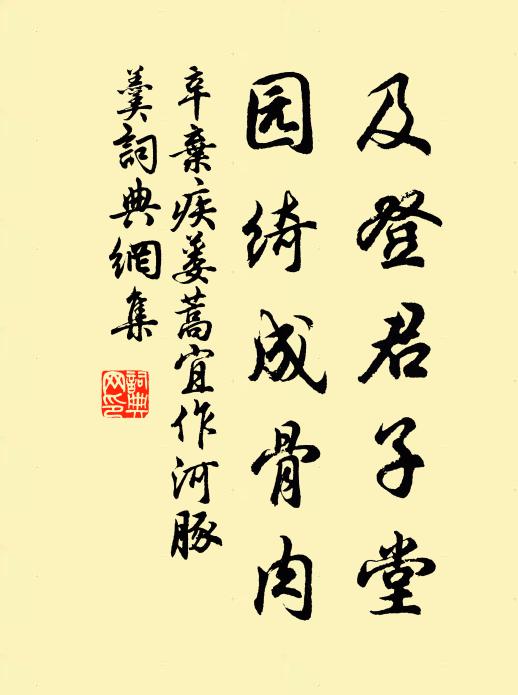 及登君子堂
园绮成骨肉
辛棄疾蒌蒿宜作河豚
羹詞典網集
詞典網印